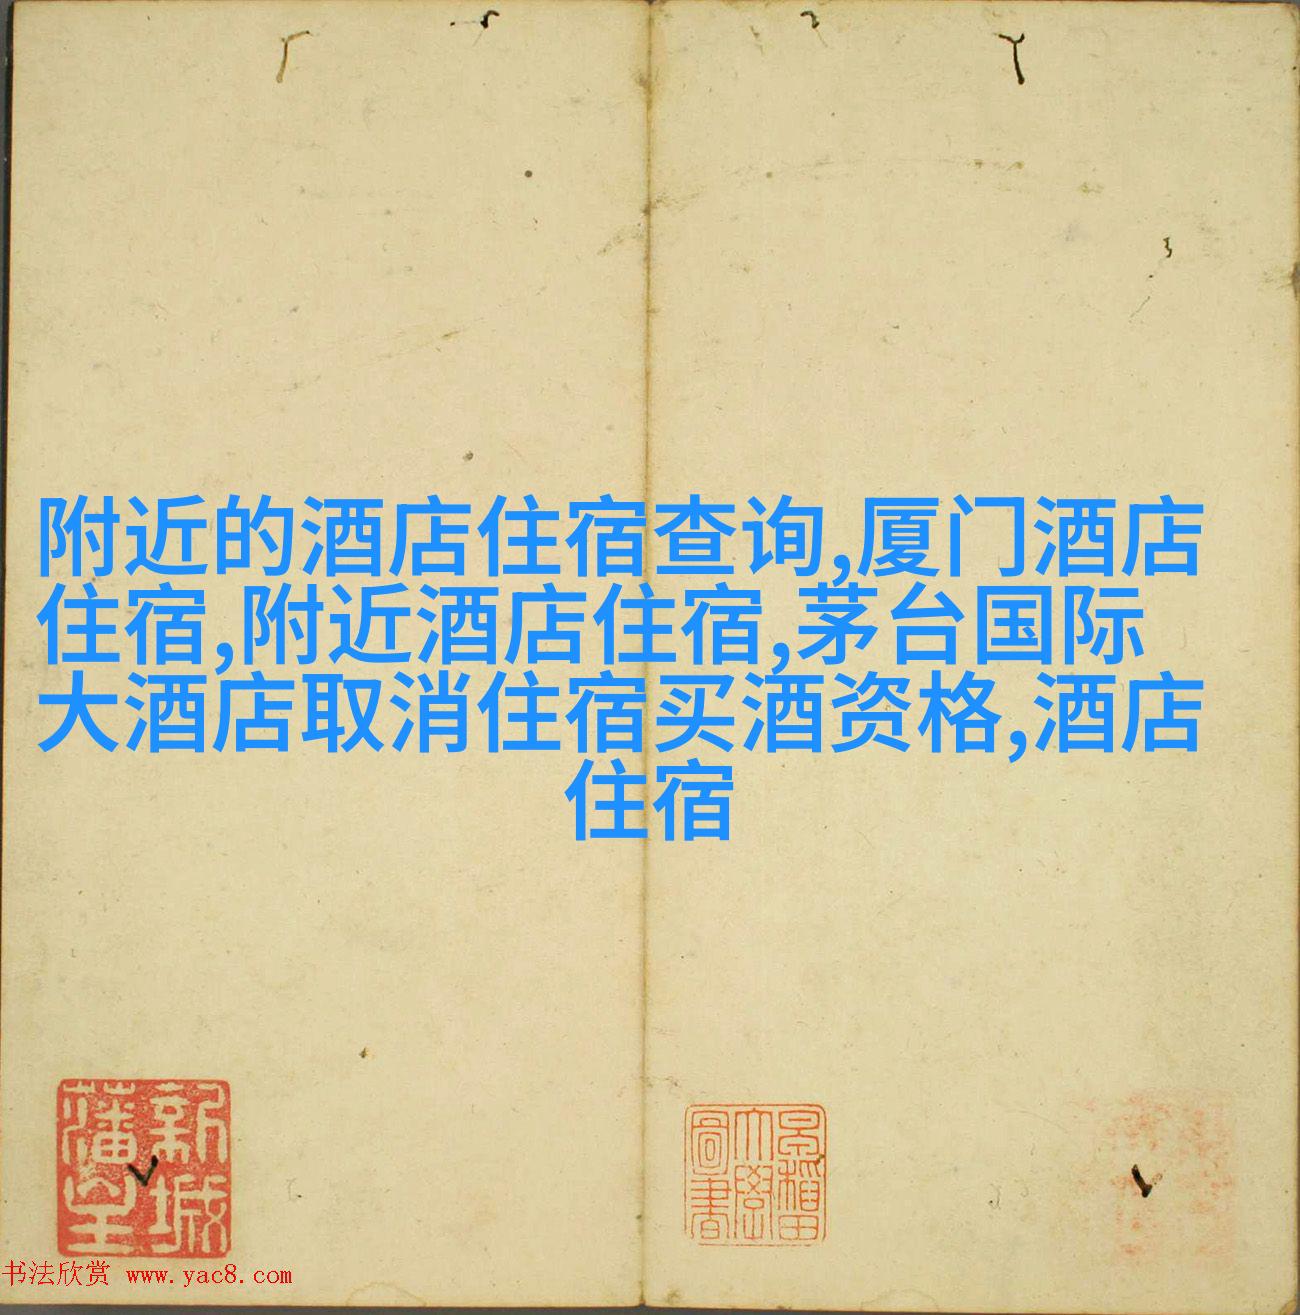 附近的酒店住宿查询,厦门酒店
住宿,附近酒店住宿,茅台国际
大酒店取消住宿买酒资格,酒店
住宿
新城
藩室
早稲田
大學
圖書
书法欣赏 www.yac8.com